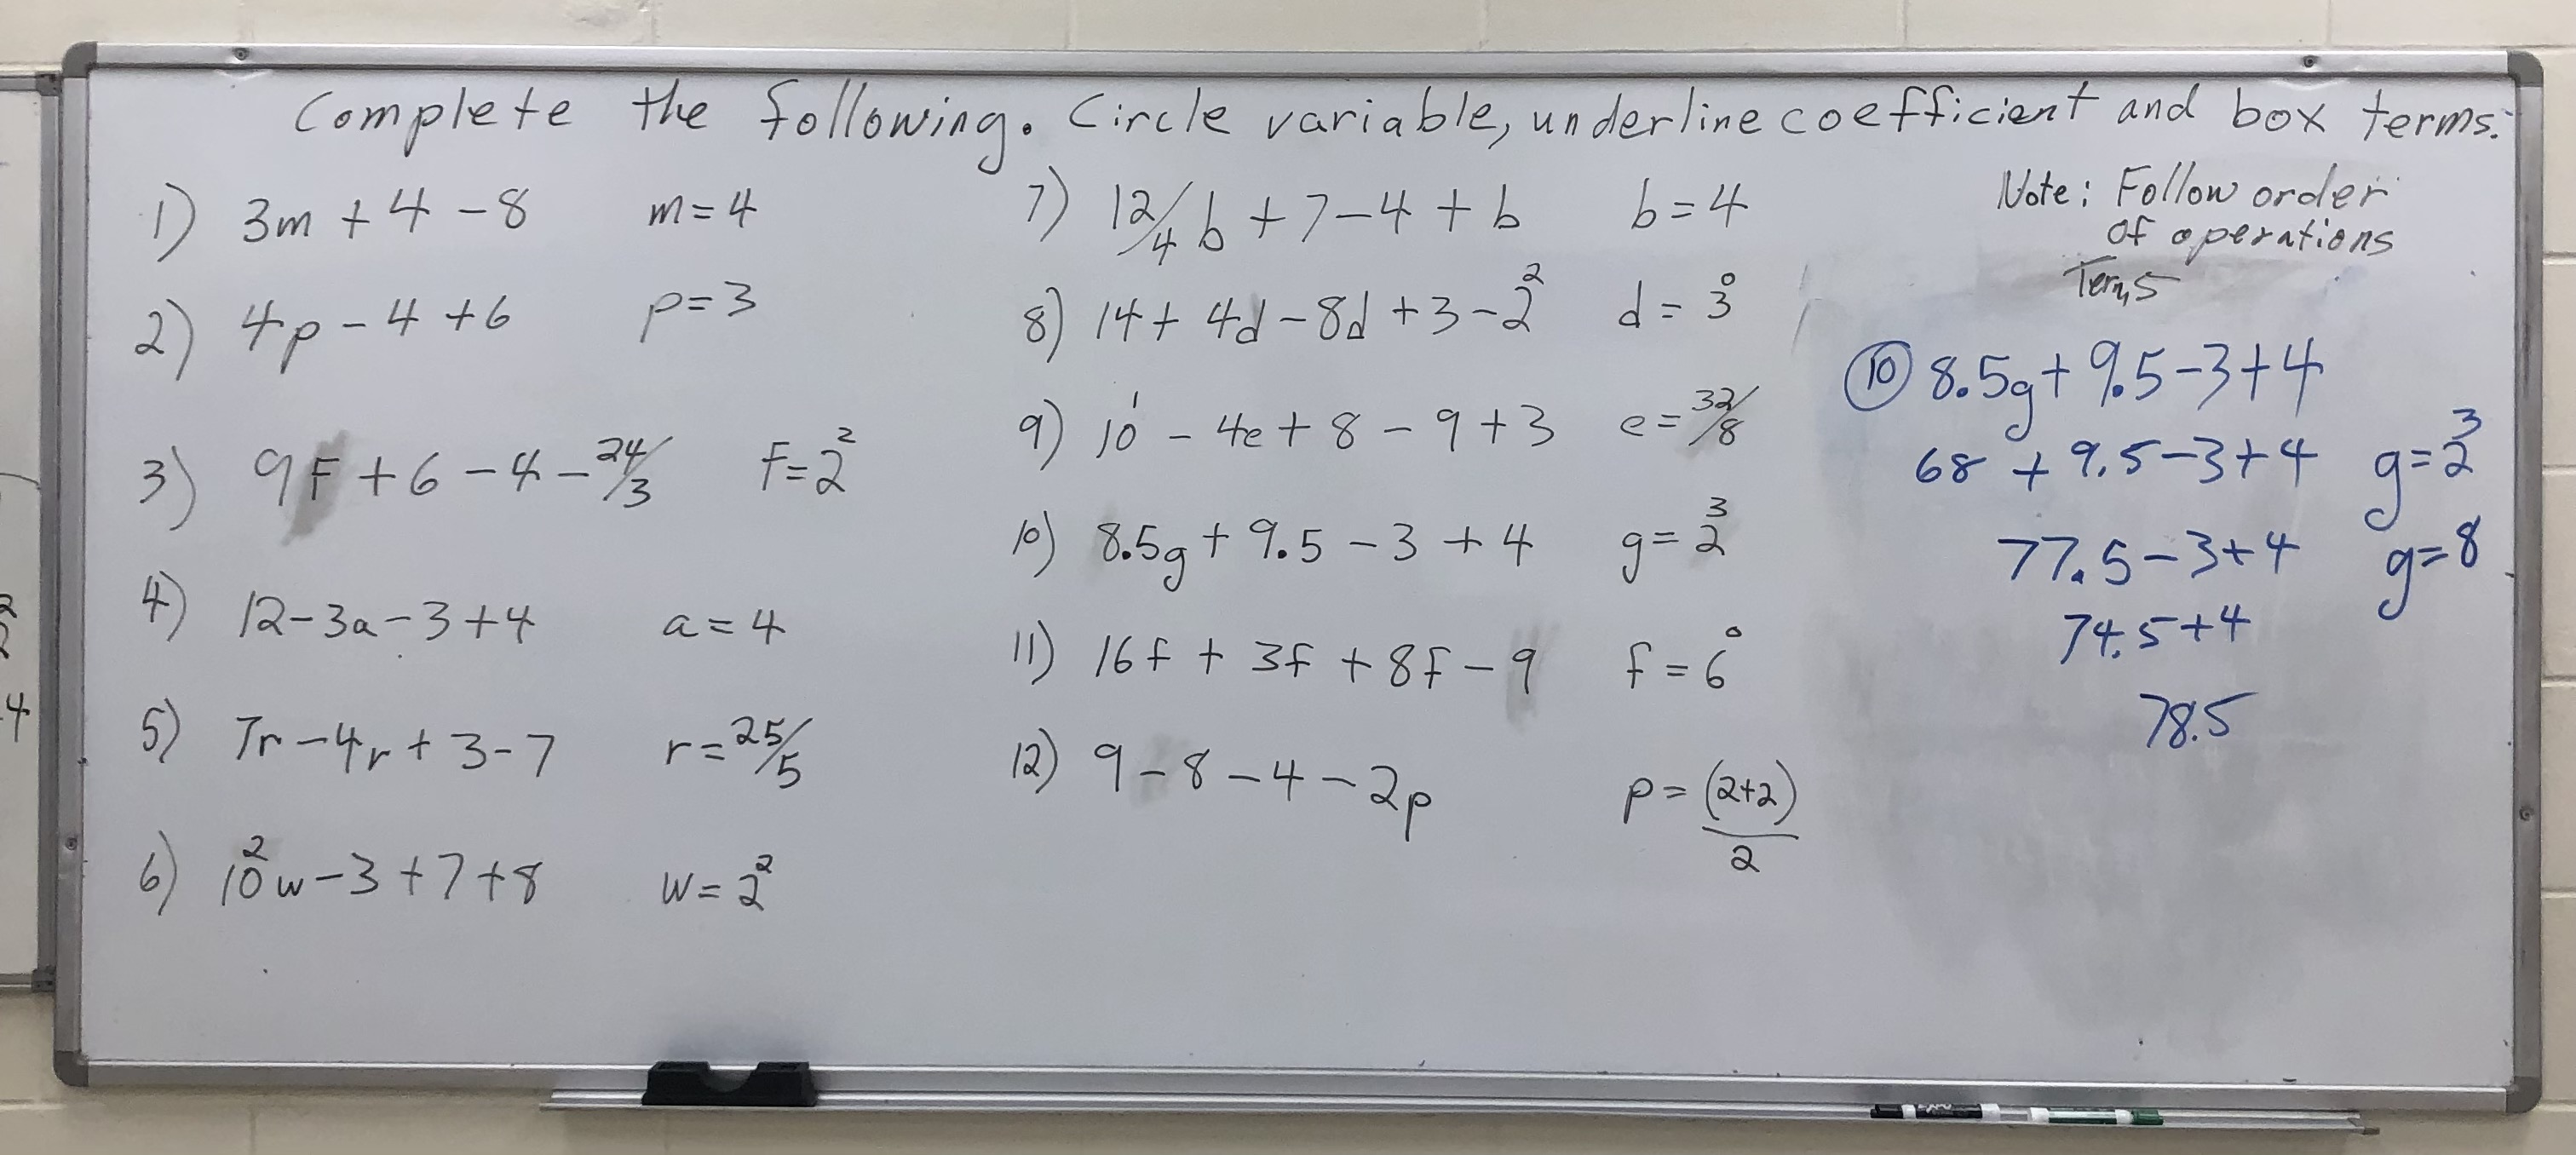 Complete the following. Circle variable, underline coefficient and box terms.
1) 3m + 4 - 8 m = 4
2) 4p - 4 + 6 p = 3
3) 9F + 6 - 4 - 24/3 F = 2²
4) 12 - 3a - 3 + 4 a = 4
5) 7r - 4r + 3 - 7 r = 25/5
6) 10²w - 3 + 7 + 8 w = 2²
7) 12/4 b + 7 - 4 + b b = 4
8) 14 + 4d - 8d + 3 - 2² d = 3⁰
9) 10¹ - 4e + 8 - 9 + 3 e = 32/8
10) 8.5g + 9.5 - 3 + 4 g = 2³
11) 16f + 3f + 8f - 9 f = 6⁰
12) 9 - 8 - 4 - 2p p = (2+2)/2
Note: Follow order
of operations
Terms
10 8.5g + 9.5 - 3 + 4
68 + 9.5 - 3 + 4 g = 2³
77.5 - 3 + 4 g = 8
74.5 + 4
78.5
2
2
4
EXPO